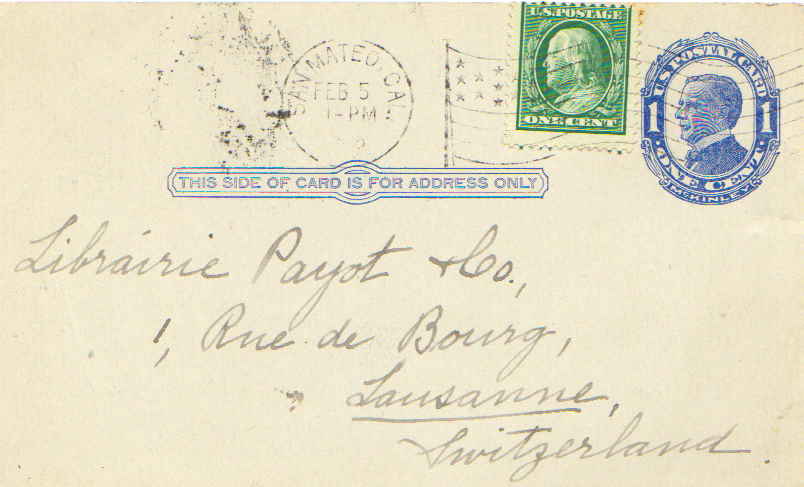 U.S. POSTAGE
ONE CENT
SAN MATEO, CAL.
FEB 5
1-PM
U.S. POSTAL CARD
1 1
ONE CENT
McKINLEY
THIS SIDE OF CARD IS FOR ADDRESS ONLY
Librairie Payot & Co.,
1, Rue de Bourg,
Lausanne,
Switzerland.